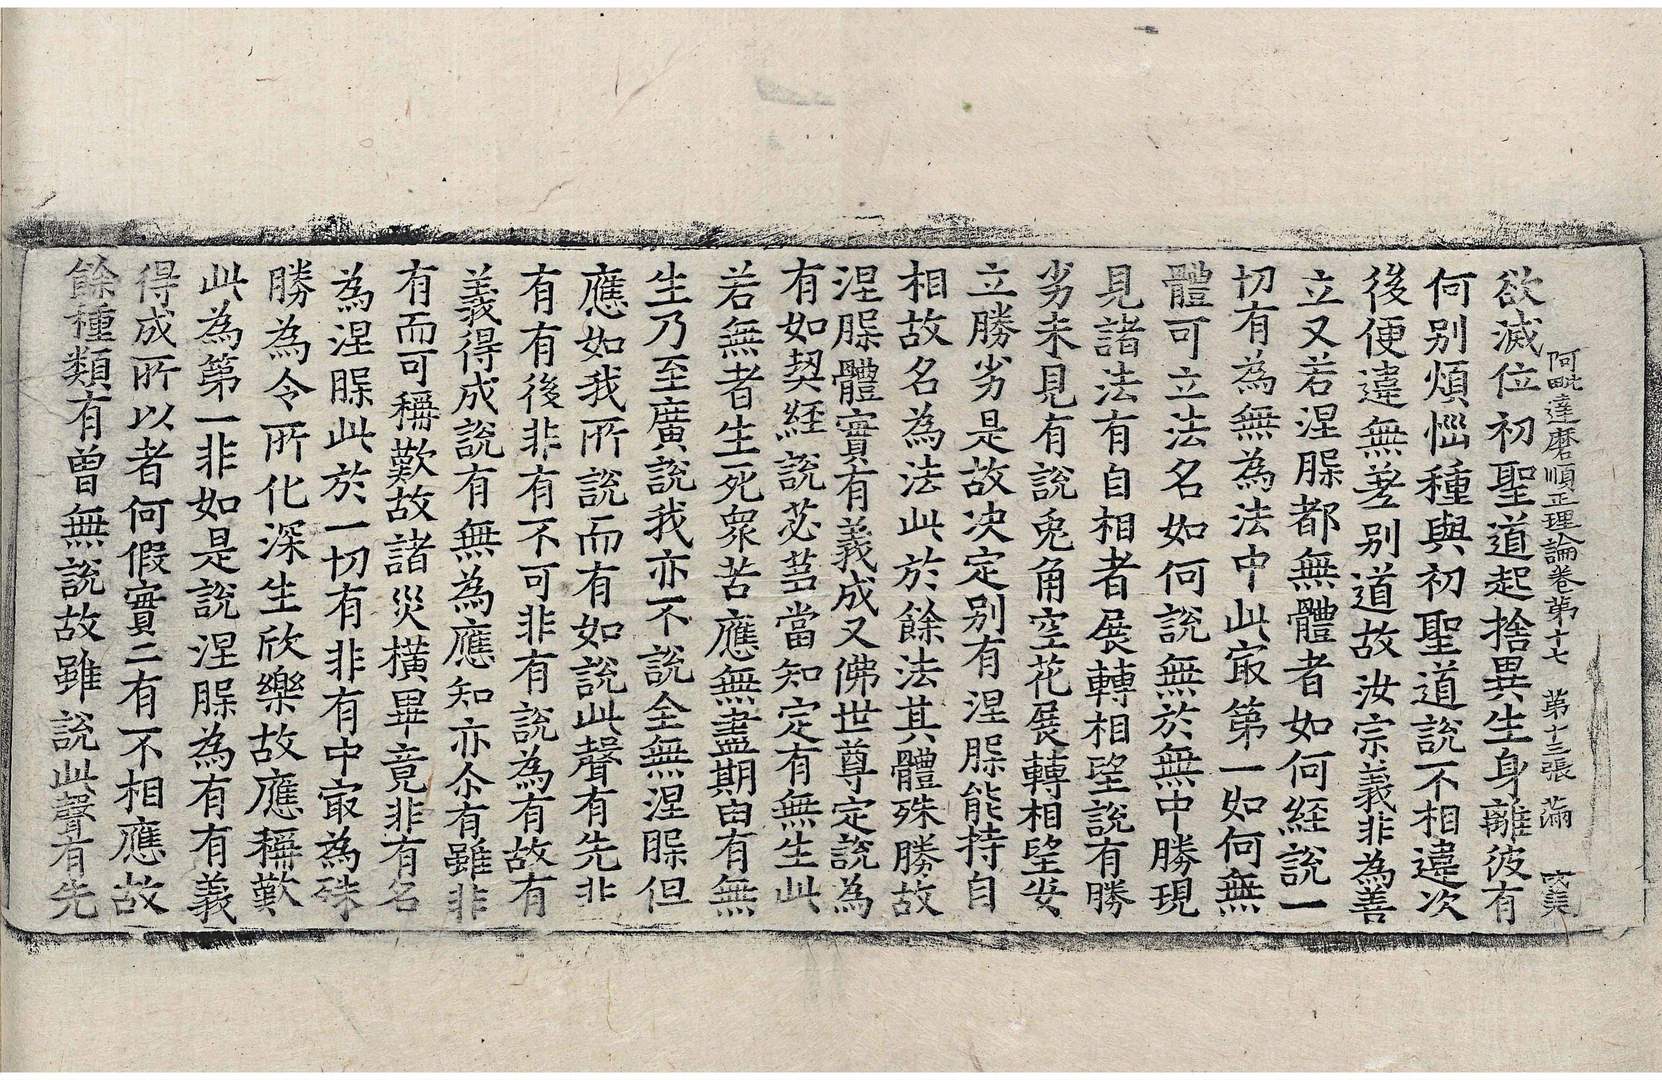 阿毗達磨順正理論卷第十七 第十三張 滿
欲滅位初聖道起捨異生身離彼有
何别煩惱種與初聖道說不相違次
後便違無差别道故汝宗義非為善
立又若涅槃都無體者如何經說一
切有為無為法中此㝡第一如何無
體可立法名如何說無於無中勝現
見諸法有自相者展轉相望說有勝
劣未見有說兎角空花展轉相望安
立勝劣是故决定别有涅槃能持自
相故名為法此於餘法其體殊勝故
涅槃體實有義成又佛世尊定說為
有如契經說苾芻當知定有無生此
若無者生死衆苦應無盡期由有無
生乃至廣說我亦不說全無涅槃但
應如我所說而有如說此聲有先非
有有後非有不可非有說為有故有
義得成說有無為應知亦尒有雖非
有而可稱歎故諸災橫畢竟非有名
為涅槃此於一切有非有中㝡為殊
勝為令所化深生欣樂故應稱歎
此為第一非如是說涅槃為有有義
得成所以者何假實二有不相應故
餘種類有曾無說故雖說此聲有先